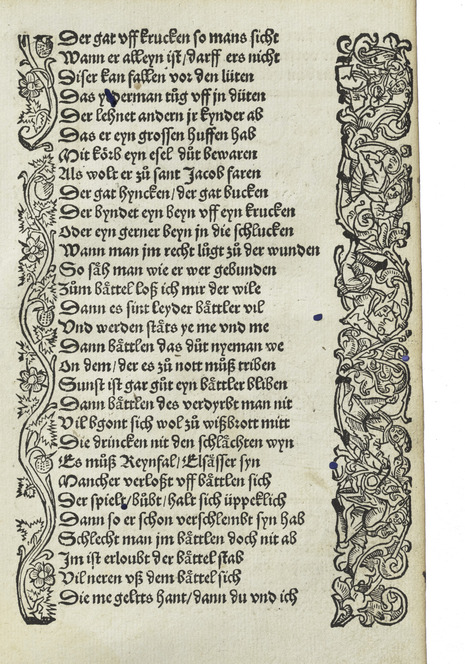 Der gat vff krucken so mans sicht
Wann er alleyn ist/darff ers nicht
Diser kan fallen vor den lüten
Das yederman tüg vff jn düten
Der lehnet andern jr kynder ab
Das er eyn grossen huffen hab
Mit körb eyn esel důt bewaren
Als wolt er zů sant Jacob faren
Der gat hyncken/der gat bucken
Der byndet eyn beyn vff eyn krucken
Oder eyn gerner beyn jn die schlucken
Wann man jm recht lůgt zů der wunden
So säh man wie er wer gebunden
Zům bättel loß ich mir der wile
Dann es sint leyder bättler vil
Vnd werden stäts ye me vnd me
Dann bättlen das důt nyeman we
On dem/der es zů nott můß triben
Sunst ist gar gůt eyn bättler bliben
Dann bättlen des verdyrbt man nit
Vil bgont sich wol zů wißbrott mitt
Die drincken nit den schlächten wyn
Es můß Reynfal/Elsässer syn
Mancher verloßt vff bättlen sich
Der spielt/bůbt/halt sich üppeklich
Dann so er schon verschlembt syn hab
Schlecht man jm bättlen doch nit ab
Jm ist erloubt der bättel stab
Vil neren vß dem bättel sich
Die me geltts hant/dann du vnd ich